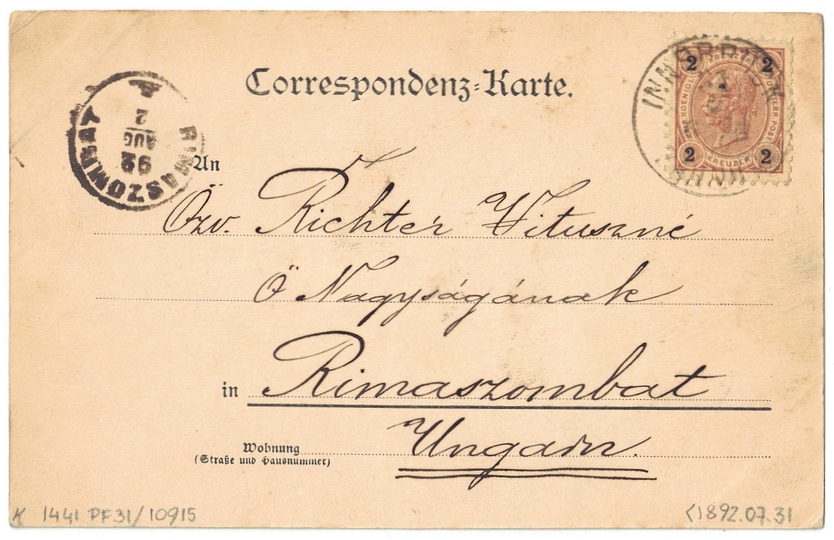 Correspondenz-Karte.
INNSBRUCK
2 2
2 2
KREUZER
RIMASZOMBAT
92
AUG
2
A
An
Özv. Richter Vituszné
Ő Nagyságának
in Rimaszombat
Wohnung
(Straße und Hausnummer)
Ungarn.
K 1441 PF31/10915
<1892.07.31